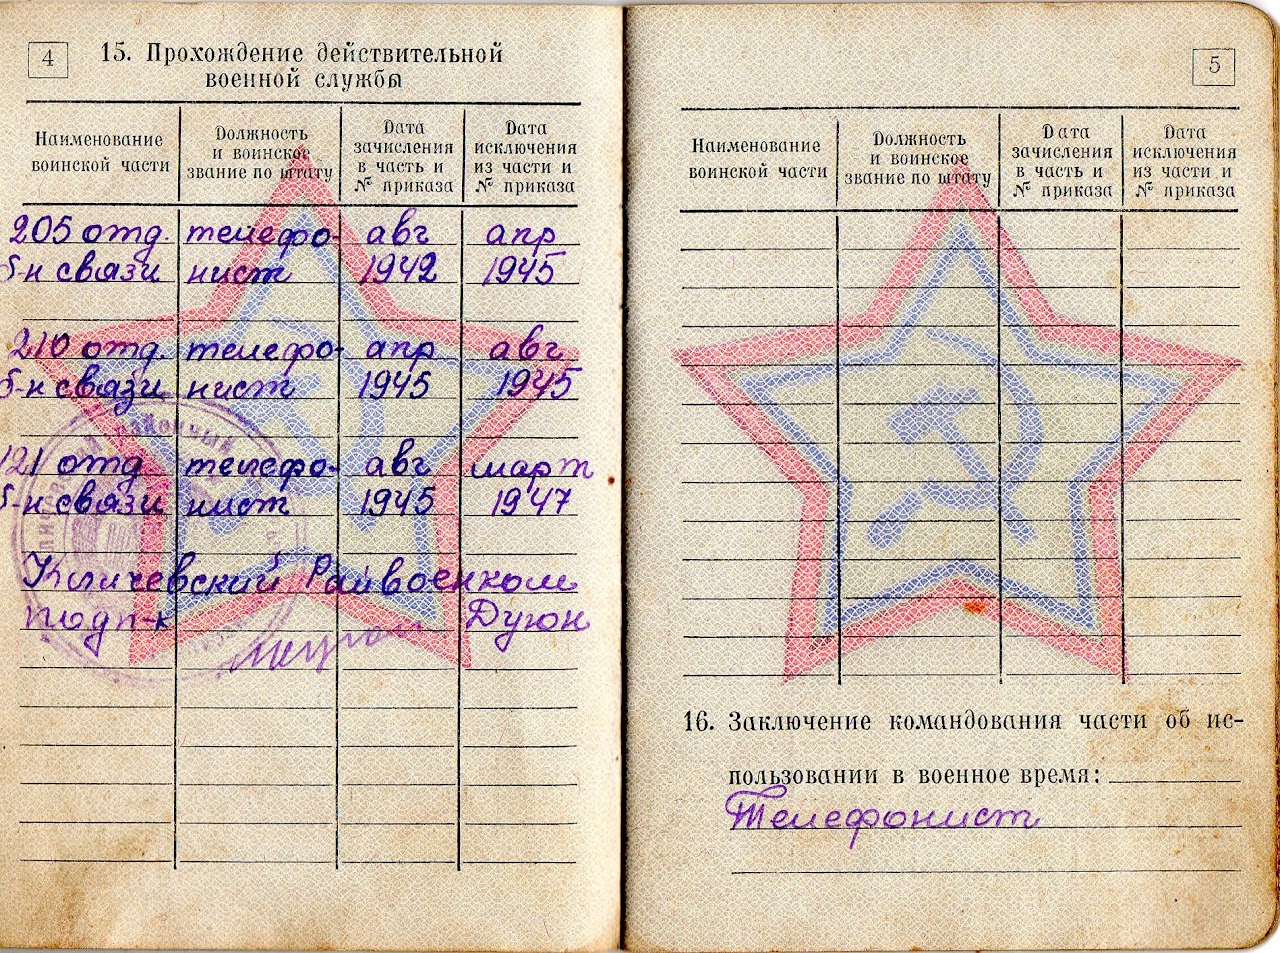 4
15. Прохождение действительной
военной службы
Наименование воинской части
Должность и воинское звание по штату
Дата зачисления в часть и № приказа
Дата исключения из части и № приказа
205 отд. телефо- авг апр
б-н связи нист 1942 1945
210 отд. телефо- апр авг
б-н связи нист 1945 1945
121 отд телефо- авг март
б-н связи нист 1945 1947
Кличевский Райвоенком
подп-к Дугон
районный
5
Наименование воинской части
Должность и воинское звание по штату
Дата зачисления в часть и № приказа
Дата исключения из части и № приказа
16. Заключение командования части об ис-
пользовании в военное время:
Телефонист